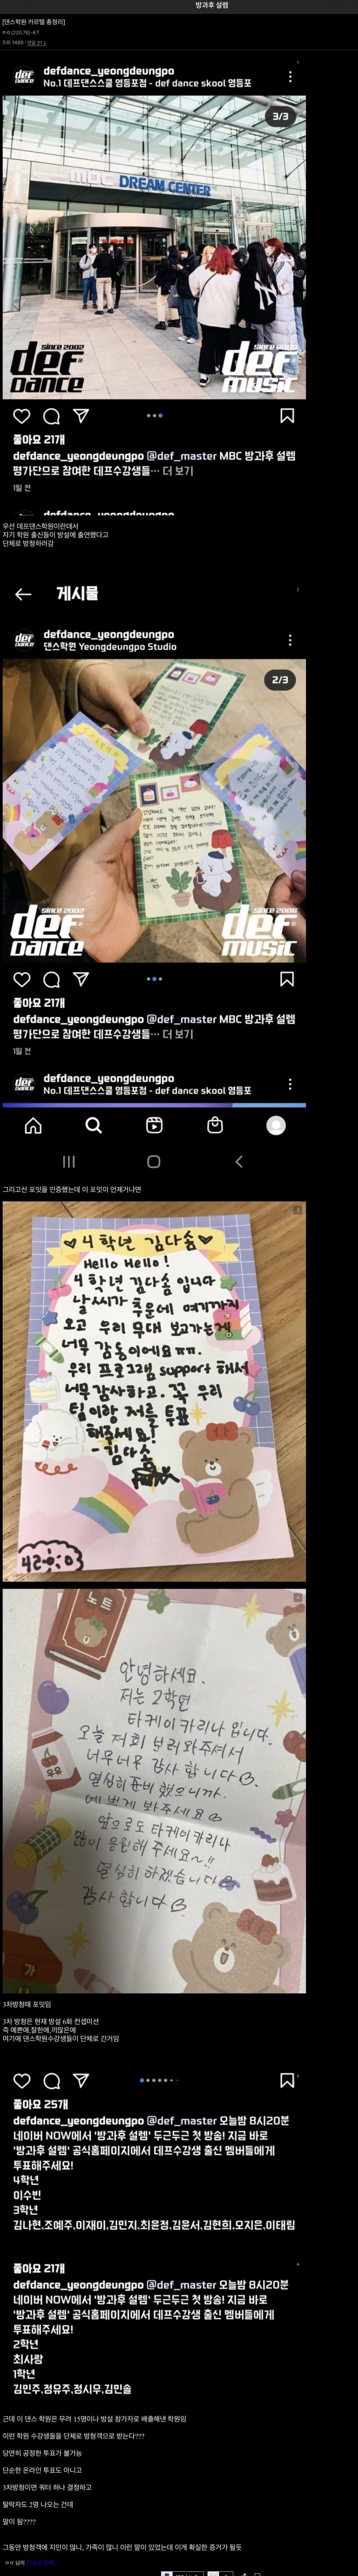 방과후 설렘
[댄스학원 카르텔 총정리]
ㅇㅇ(220.76)-K7
조회 1486 | 댓글 21↓
defdance_yeongdeungpo
No.1 데프댄스스쿨 영등포점 - def dance skool 영등포
3/3
DREAM CENTER
since 2002
def
DANCE
since 2008
def
MUSIC
좋아요 21개
defdance_yeongdeungpo @def_master MBC 방과후 설렘
평가단으로 참여한 데프수강생들… 더 보기
1일 전
defdance_yeongdeungpo
우선 데프댄스학원이란데서
자기 학원 출신들이 방설에 출연했다고
단체로 방청하러감
게시물
defdance_yeongdeungpo
댄스학원 Yeongdeungpo Studio
2/3
since 2002
def
DANCE
since 2008
def
MUSIC
좋아요 21개
defdance_yeongdeungpo @def_master MBC 방과후 설렘
평가단으로 참여한 데프수강생들… 더 보기
1일 전
defdance_yeongdeungpo
No.1 데프댄스스쿨 영등포점 - def dance skool 영등포
그리고선 포잇을 인증했는데 이 포잇이 언제거냐면
♡4학년 김다솜♡
Hello Hello!
4학년 김다솜 입니다
날씨가 추운데 여기까지
오고 우리 무대 보고가는게
너무 감동이에요ㅠㅠ.
우리 프로그램 support 해서
너무 감사하고.. 그럼 우리
팀이랑 저를 투표
해주세요!
-김다솜
노트
안녕하세요.
저는 2학년
타케이 카리나 입니다.
오늘 저희 보러와주셔서
너무너무 감사합니다♡.
열심히 준비 했으니까.
예쁘게 봐주세요♡
앞으로도 타케이카리나
많이 응원해 주세요~!!
열심히 하겠습니다♡
감사합니다♡
3차방청때 포잇임
3차 방청은 현재 방설 6화 컨셉미션
즉 예쁜애,잘한애,끼많은애
여기에 댄스학원수강생들이 단체로 간거임
좋아요 25개
defdance_yeongdeungpo @def_master 오늘밤 8시20분
네이버 NOW에서 '방과후 설렘' 두근두근 첫 방송! 지금 바로
'방과후 설렘' 공식홈페이지에서 데프수강생 출신 멤버들에게
투표해주세요!
4학년
이수빈
3학년
김나현,조예주,이재이,김민지,최윤정,김윤서,김현희,오지은,이태림
좋아요 21개
defdance_yeongdeungpo @def_master 오늘밤 8시20분
네이버 NOW에서 '방과후 설렘' 두근두근 첫 방송! 지금 바로
'방과후 설렘' 공식홈페이지에서 데프수강생 출신 멤버들에게
투표해주세요!
2학년
최사랑
1학년
김민주,정유주,정시우,김민솔
근데 이 댄스 학원은 무려 15명이나 방설 참가자로 배출해낸 학원임
이런 학원 수강생들을 단체로 방청객으로 받는다???
당연히 공정한 투표가 불가능
단순한 온라인 투표도 아니고
3차방청이면 쿼터 하나 결정하고
탈락자도 2명 나오는 건데
말이 됨????
그동안 방청객에 지인이 많니, 가족이 많니 이런 말이 있었는데 이게 확실한 증거가 될듯